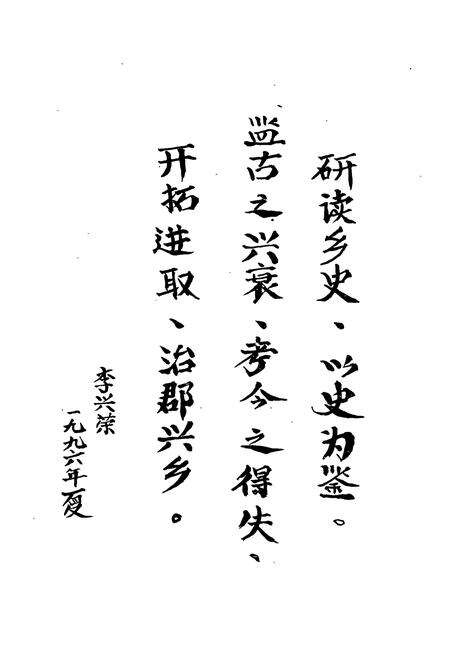 研读乡史、以史为鉴。
监古之兴衰、考今之得失、
开拓进取、治郡兴乡。
李兴荣
一九九六年夏